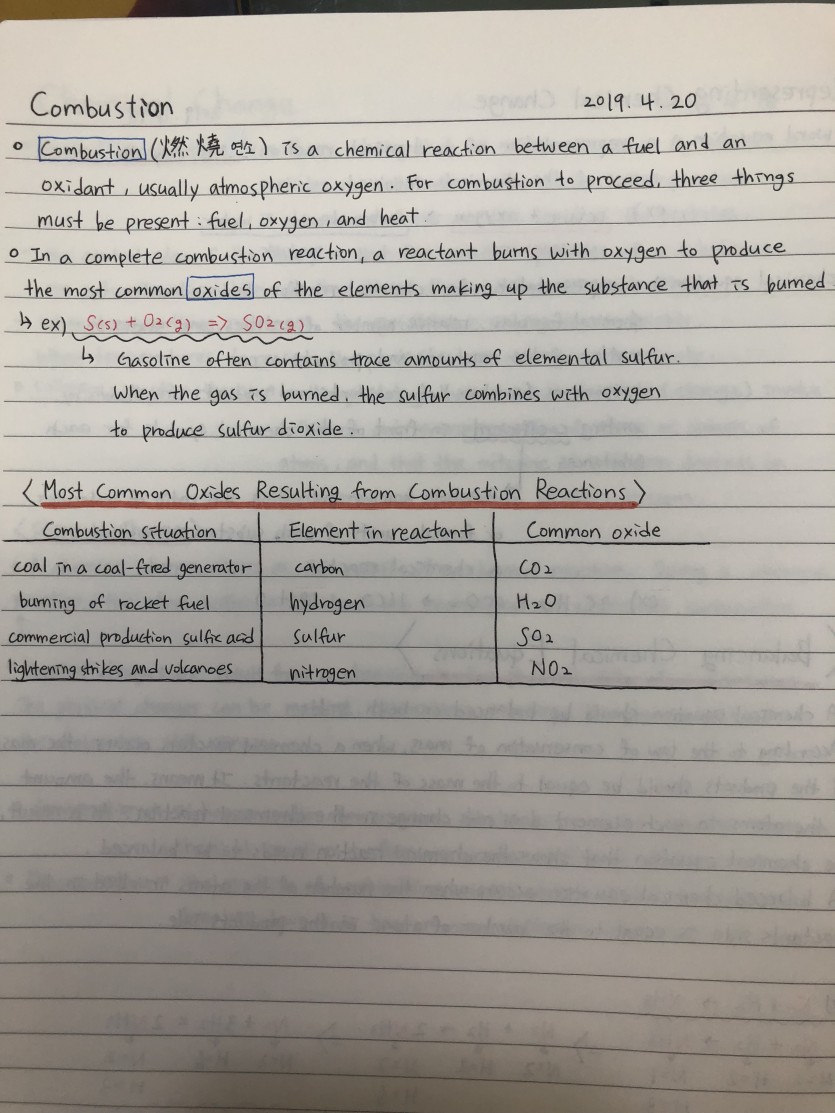 Combustion 2019. 4. 20
o Combustion (燃燒 연소) is a chemical reaction between a fuel and an
oxidant, usually atmospheric oxygen. For combustion to proceed, three things
must be present : fuel, oxygen, and heat.
o In a complete combustion reaction, a reactant burns with oxygen to produce
the most common oxides of the elements making up the substance that is burned
↳ ex) S(s) + O2(g) => SO2(g)
↳ Gasoline often contains trace amounts of elemental sulfur.
When the gas is burned, the sulfur combines with oxygen
to produce sulfur dioxide.
< Most Common Oxides Resulting from Combustion Reactions >
Combustion situation Element in reactant Common oxide
coal in a coal-fired generator carbon CO2
burning of rocket fuel hydrogen H2O
commercial production sulfic acid sulfur SO2
lightening strikes and volcanoes nitrogen NO2